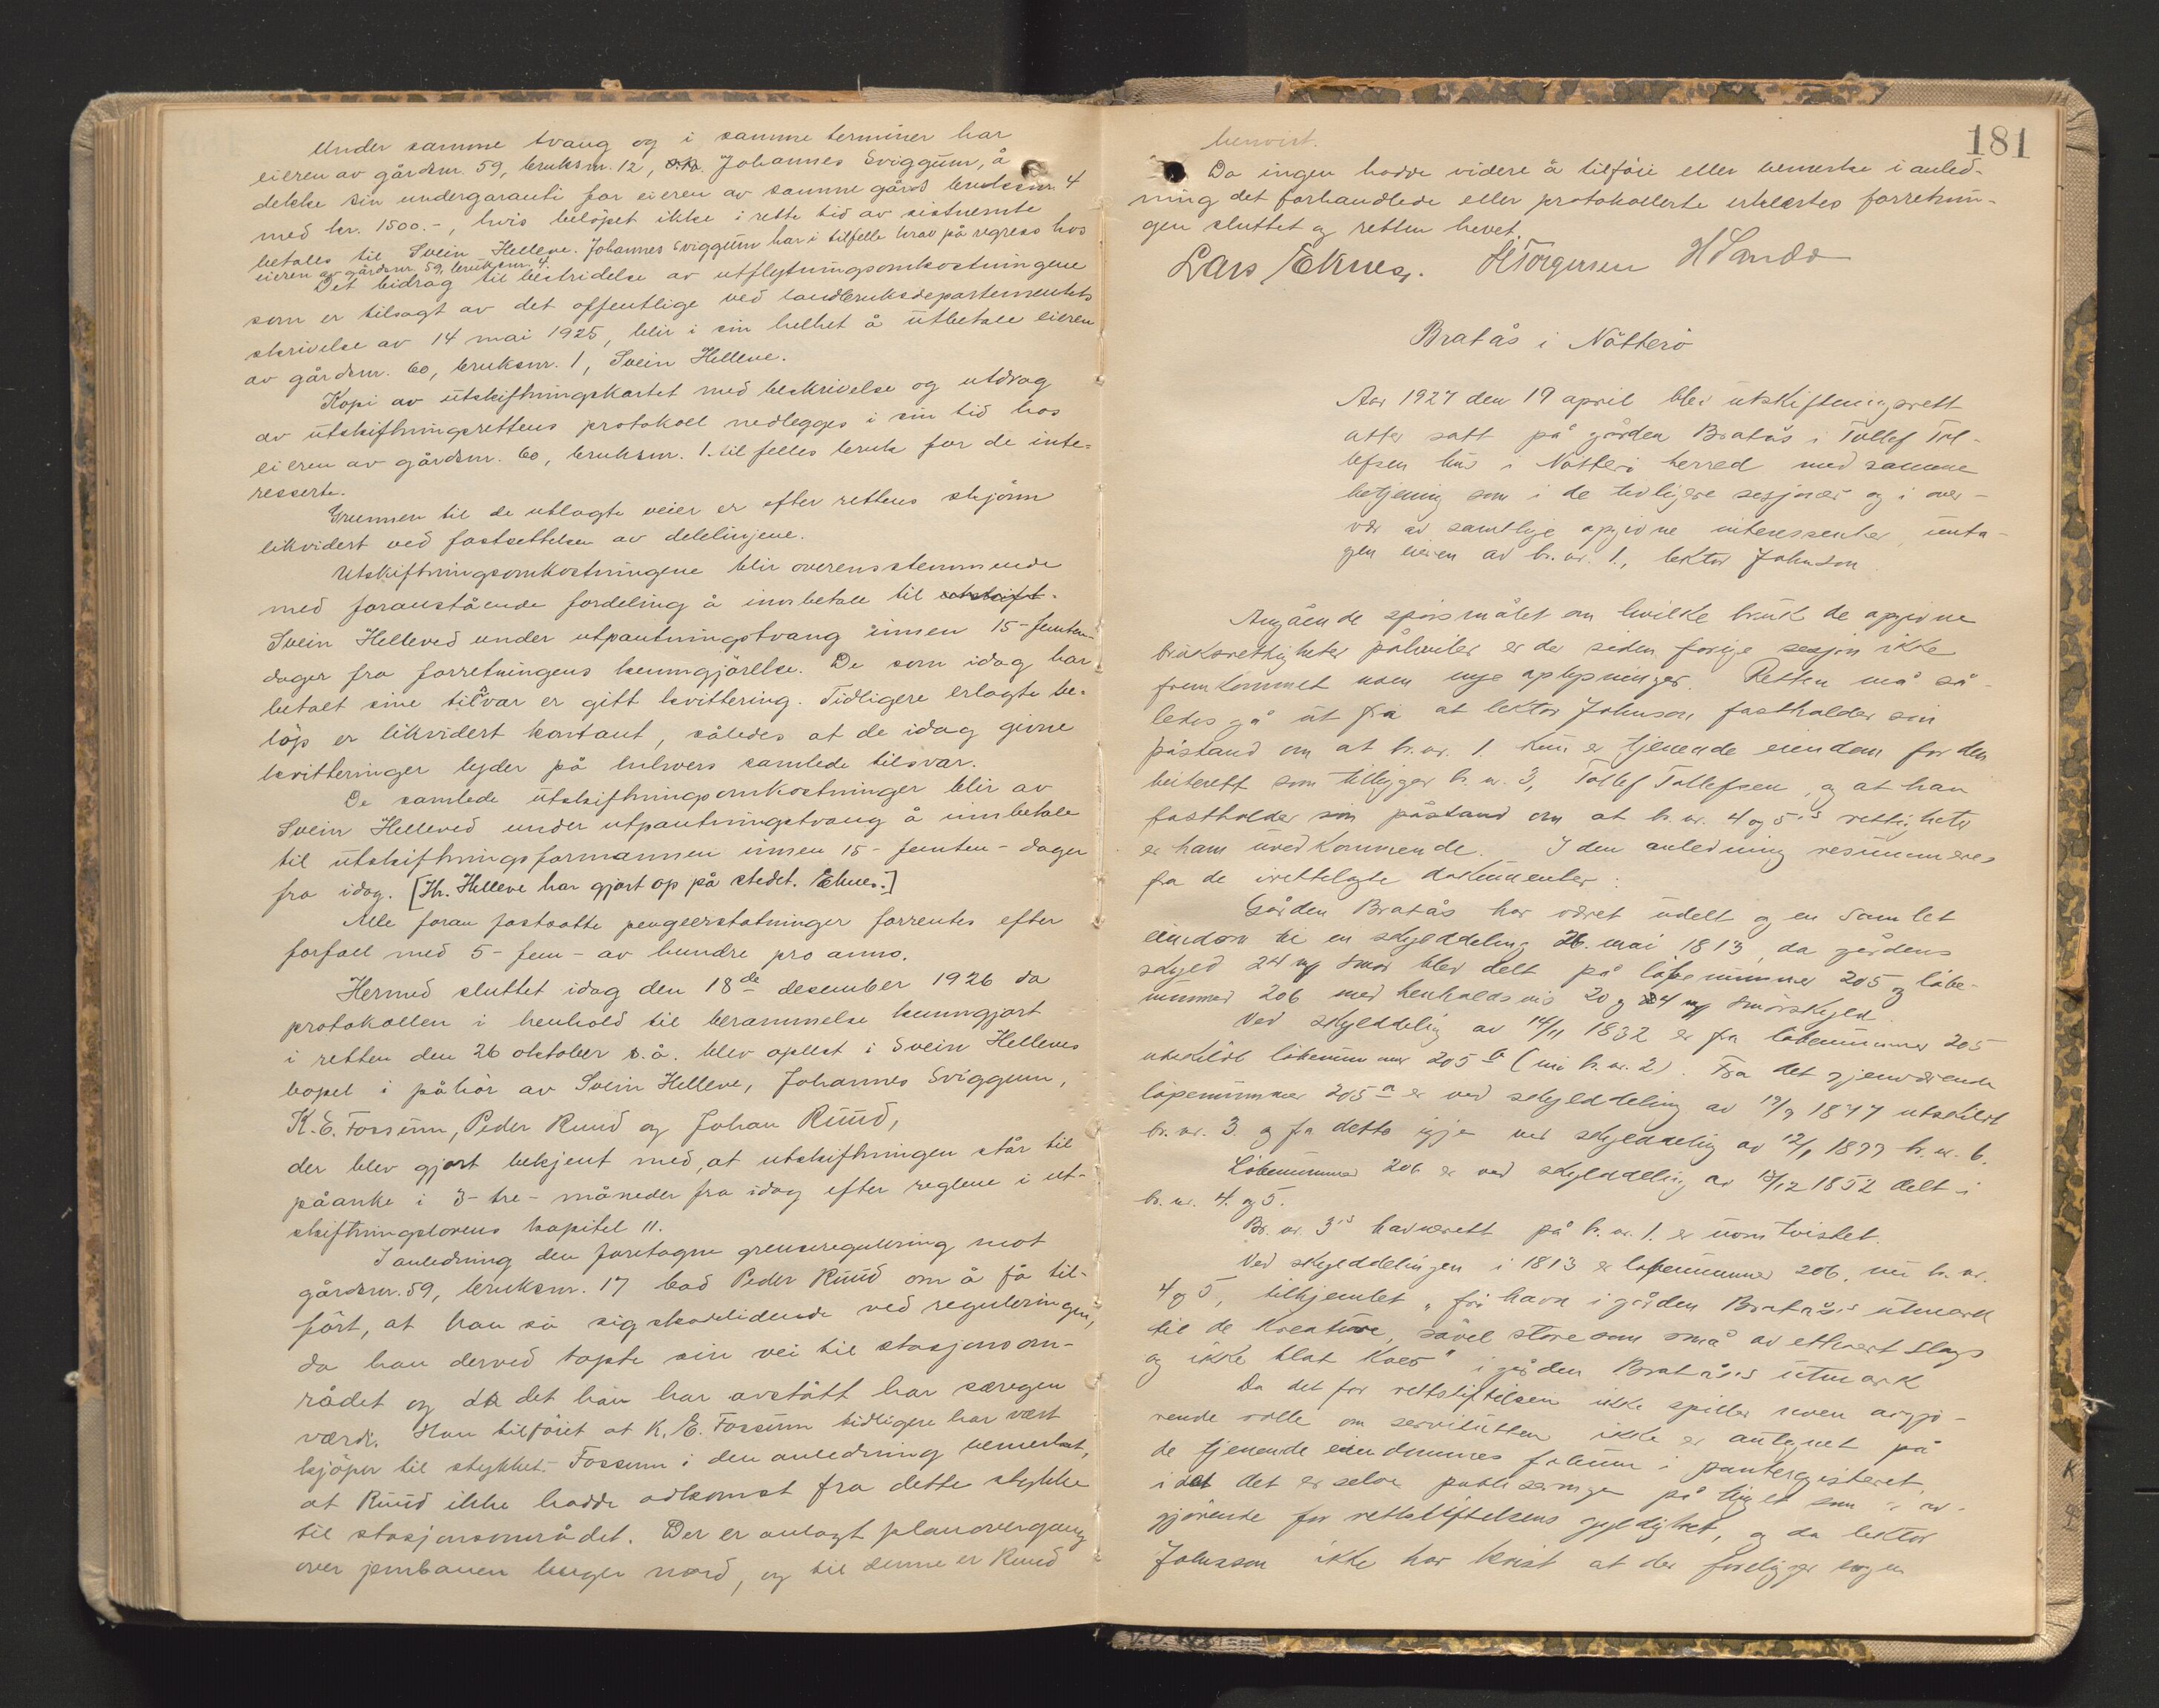 Under samme tvang og i samme terminer har
eieren av gårdsnr. 59, bruksnr. 12, Johannes Sviggum, å
dekke sin undergaranti for eieren av samme gårds bruksnr. 4
med kr. 1500.-, hvis beløpet ikke i rette tid av sistnemte
betales til Svein Helleve. Johannes Sviggum har i tilfelle krav på regress hos
eieren av gårdsnr. 59, bruksnr. 4.
Det bidrag til bestridelse av utflytningsomkostningene
som er tilsagt av det offentlige ved landbruksdepartementets
skrivelse av 14 mai 1925, blir i sin helhet å utbetale eieren
av gårdsnr. 60, bruksnr. 1, Svein Helleve.
Kopi av utskiftningskartet med beskrivelse og utdrag
av utskiftningsrettens protokoll nedlegges i sin tid hos
eieren av gårdsnr. 60, bruksnr. 1. til felles bruk for de inte-
resserte.
Grunnen til de utlagte veier er efter rettens skjønn
likvidert ved fastsettelsen av delelinjene.
Utskiftningsomkostningene blir overensstemmende
med foranstående fordeling å innbetale til utskift-
Svein Helleved under utpantningstvang innen 15-femten-
dager fra forretningens kunngjørelse. De som idag har
betalt sine tilsvar er gitt kvittering. Tidligere erlagte be-
løp er likvidert kontant, således at de idag givne
kvitteringer lyder på enhvers samlede tilsvar.
De samlede utskiftningsomkostninger blir av
Svein Helleved under utpantningstvang å innbetale
til utskiftningsformannen innen 15 - femten - dager
fra idag. [Hr. Helleve har gjort op på stedet. Eknes.]
Alle foran fastsatte pengeerstatninger forrentes efter
forfall med 5 - fem - av hundre pro anno.
Hermed sluttet idag den 18de desember 1926 da
protokollen i henhold til berammelse kunngjort
i retten den 26 oktober s.å. blev oplest i Svein Helleves
bopel i påhør av Svein Helleve, Johannes Sviggum,
K. E. Fossum, Peder Ruud og Johan Ruud,
der blev gjort bekjent med, at utskiftningen står til
påanke i 3 - tre - måneder fra idag efter reglene i ut-
skiftningslovens kapitel 11.
I anledning den foretagne grenseregulering mot
gårdsnr. 59, bruksnr. 17 bad Peder Ruud om å få til-
ført, at han så sig skadelidende ved reguleringen,
da han derved tapte sin vei til stasjonsom-
rådet og da det han har avstått har særegen
værdi. Han tilføiet at K. E. Fossum tidligere har vært
kjøper til stykket. Fossum i den anledning bemerket,
at Ruud ikke hadde adkomst fra dette stykke
til stasjonsområdet. Der er anlagt planovergang
over jernbanen lenger nord, og til denne er Ruud
181
henvist.
Da ingen hadde videre å tilføie eller bemerke i anled-
ning det forhandlede eller protokollerte erklærtes forretnin-
gen sluttet og retten hevet.
Lars Eknes. H Torgersen H Sando
Bratås i Nøtterø
Aar 1927 den 19 april blev utskiftningsrett
atter satt på gården Bratås i Tollef Tol-
lefsen hus i Nøtterø herred med samme
betjening som i de tidligere sesjoner og i over-
vær av samtlige opgivne interessenter unta-
gen eieren av br. nr. 1., lektor Johnson.
Angående spørsmålet om hvilke bruk de opgivne
bruksrettigheter påhviler er der siden forrige sesjon ikke
fremkommet noen nye oplysninger. Retten må så-
ledes gå ut fra at lektor Johnson fastholder sin
påstand om at br. nr. 1. kun er tjenende eiendom for den
beiterett som tilligger br. nr. 3, Tollef Tollefsen, og at han
fastholder sin påstand om at br. nr. 4 og 5's rettigheter
er ham uvedkommende. I den anledning resummeres
fra de irettelagte dokumenter:
Gården Bratås har været udelt og en samlet
eiendom til en skylddeling 26. mai 1813, da gårdens
skyld 24 mrk smør blev delt på løpenummer 205 og løbe-
nummer 206 med henholdsvis 20 og 4 mrk smørskyld.
Ved skylddeling av 14/11 1832 er fra løbenummer 205
utskildt løbenummer 205 b (nu br. nr. 2). Fra det gjenværende
løpenummer 205 a er ved skylddeling av 19/9 1847 utskildt
br. nr. 3. og fra dette igjen ved skylddeling av 12/1 1899 br. nr. 6.
Løbenummer 206 er ved skylddeling av 13/12 1852 delt i
br. nr. 4. og 5.
Br. nr. 3's havnerett på br. nr. 1. er uomtvistet.
Ved skylddelingen i 1813 er løpenummer 206, nu br. nr.
4 og 5, tilkjendet "fri havn i gården Bratås's utmark
til de kreature, såvel store som små av ethvert slags
og ikke blot køer" i gården Bratås's utmark
Da det for rettstiftelsen ikke spiller noen avgjø-
rende rolle om servitutten ikke er antegnet på
de tjenende eiendommes folium i panteregisteret,
idet det er selve publiseringen på tinget som er av-
gjørende for rettsstiftelsens gyldighet, og da lektor
Johnson ikke har bevist at der foreligger nogen